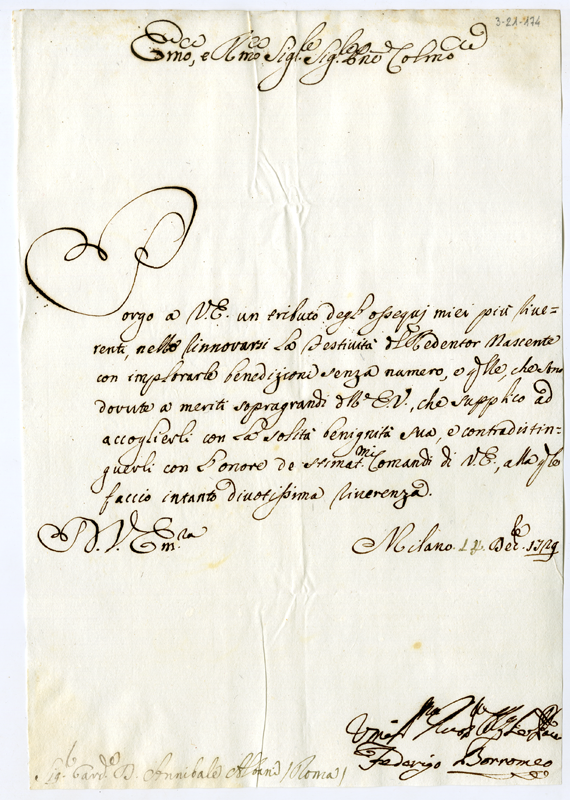 3-21-174
Emo, e Rmo Sigr. Sigr. Pne Colmo
Porgo a V.E. un tributo degl'ossequj miei più rive=
renti, nello rinnovarsi la Festività del Redentor Nascente
con implorarle benedizioni senza numero, e qlle, che sono
dovute a meriti sopragrandi dell'E.V., che supplico ad
accoglierli con la solita benignità sua, e contradistin=
guerli con l'onore de stimatmi Comandi di V.E., alla qle
faccio intanto divotissima riverenza.
D. V. Emza
Milano Dece. 1729
Federigo Borromeo
Sigr. Card. D. Annibale Albani (Roma)